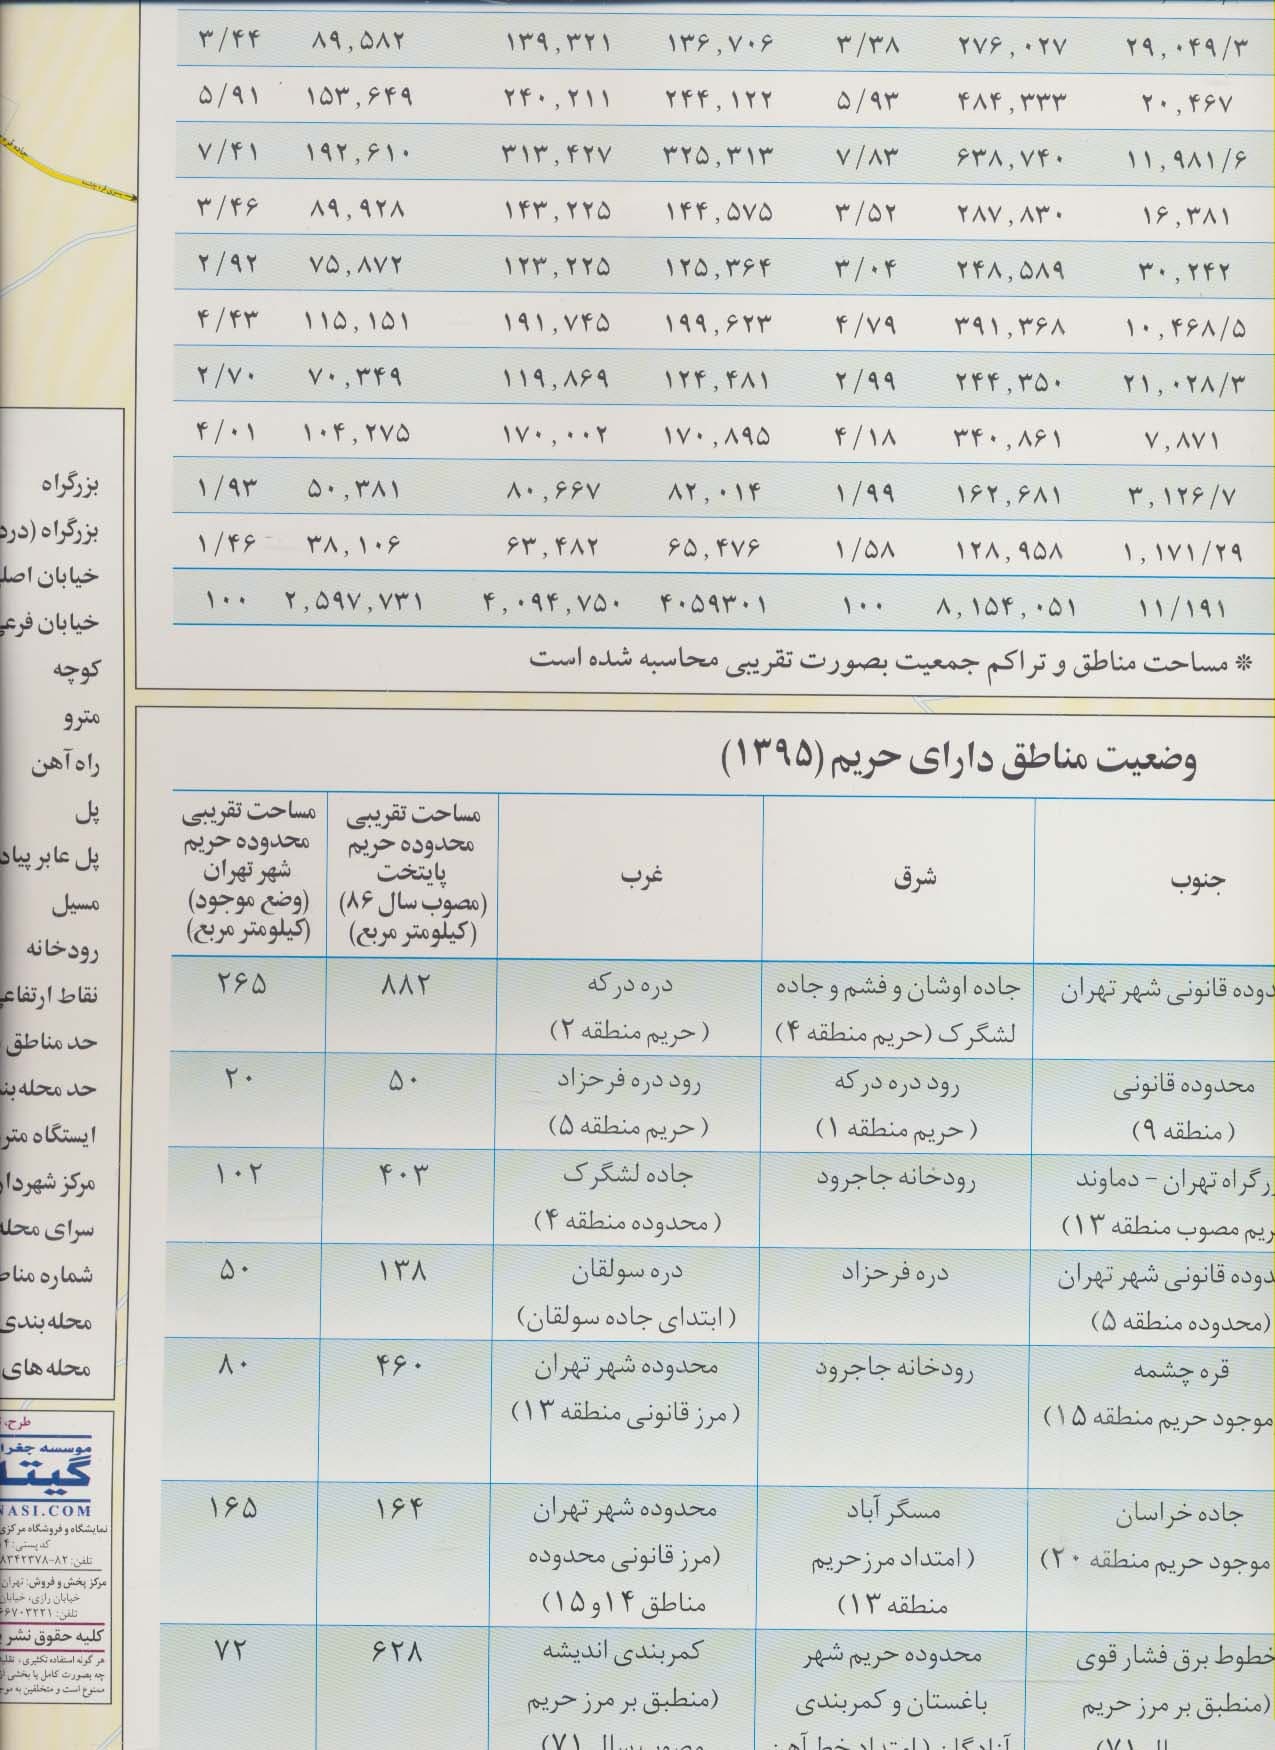 ۲۹,۰۴۹/۳ ۲۷۶,۰۲۷ ۳/۳۸ ۱۳۶,۷۰۶ ۱۳۹,۳۲۱ ۸۹,۵۸۲ ۳/۴۴
۲۰,۴۶۷ ۴۸۴,۳۳۳ ۵/۹۳ ۲۴۴,۱۲۲ ۲۴۰,۲۱۱ ۱۵۳,۶۴۹ ۵/۹۱
۱۱,۹۸۱/۶ ۶۳۸,۷۴۰ ۷/۸۳ ۳۲۵,۳۱۳ ۳۱۳,۴۲۷ ۱۹۲,۶۱۰ ۷/۴۱
۱۶,۳۸۱ ۲۸۷,۸۳۰ ۳/۵۲ ۱۴۴,۵۷۵ ۱۴۳,۲۲۵ ۸۹,۹۲۸ ۳/۴۶
۳۰,۲۴۲ ۲۴۸,۵۸۹ ۳/۰۴ ۱۲۵,۳۶۴ ۱۲۳,۲۲۵ ۷۵,۸۷۲ ۲/۹۲
۱۰,۴۶۸/۵ ۳۹۱,۳۶۸ ۴/۷۹ ۱۹۹,۶۲۳ ۱۹۱,۷۴۵ ۱۱۵,۱۵۱ ۴/۴۳
۲۱,۰۲۸/۳ ۲۴۴,۳۵۰ ۲/۹۹ ۱۲۴,۴۸۱ ۱۱۹,۸۶۹ ۷۰,۳۴۹ ۲/۷۰
۷,۸۷۱ ۳۴۰,۸۶۱ ۴/۱۸ ۱۷۰,۸۹۵ ۱۷۰,۰۰۲ ۱۰۴,۲۷۵ ۴/۰۱
۳,۱۲۶/۷ ۱۶۲,۶۸۱ ۱/۹۹ ۸۲,۰۱۴ ۸۰,۶۶۷ ۵۰,۳۸۱ ۱/۹۳
۱,۱۷۱/۲۹ ۱۲۸,۹۵۸ ۱/۵۸ ۶۵,۴۷۶ ۶۳,۴۸۲ ۳۸,۱۰۶ ۱/۴۶
۱۱/۱۹۱ ۸,۱۵۴,۰۵۱ ۱۰۰ ۴۰۵۹۳۰۱ ۴,۰۹۴,۷۵۰ ۲,۵۹۷,۷۳۱ ۱۰۰
* مساحت مناطق و تراکم جمعیت بصورت تقریبی محاسبه شده است
وضعیت مناطق دارای حریم (۱۳۹۵)
جنوب
شرق
غرب
مساحت تقریبی
محدوده حریم
پایتخت
(مصوب سال ۸۶)
(کیلومتر مربع)
مساحت تقریبی
محدوده حریم
شهر تهران
(وضع موجود)
(کیلومتر مربع)
دوده قانونی شهر تهران
جاده اوشان و فشم و جاده
لشگرک (حریم منطقه ۴)
دره درکه
(حریم منطقه ۲)
۸۸۲
۲۶۵
محدوده قانونی
(منطقه ۹)
رود دره درکه
(حریم منطقه ۱)
رود دره فرحزاد
(حریم منطقه ۵)
۵۰
۲۰
رگراه تهران - دماوند
ریم مصوب منطقه ۱۳)
رودخانه جاجرود
جاده لشگرک
(محدوده منطقه ۴)
۴۰۳
۱۰۲
دوده قانونی شهر تهران
(محدوده منطقه ۵)
دره فرحزاد
دره سولقان
(ابتدای جاده سولقان)
۱۳۸
۵۰
قره چشمه
موجود حریم منطقه ۱۵)
رودخانه جاجرود
محدوده شهر تهران
(مرز قانونی منطقه ۱۳)
۴۶۰
۸۰
جاده خراسان
موجود حریم منطقه ۲۰)
مسگر آباد
(امتداد مرز حریم
منطقه ۱۳)
محدوده شهر تهران
(مرز قانونی محدوده
مناطق ۱۴ و ۱۵)
۱۶۴
۱۶۵
خطوط برق فشار قوی
(منطبق بر مرز حریم
محدوده حریم شهر
باغستان و کمربندی
کمربندی اندیشه
(منطبق بر مرز حریم
مصوب سال ۷۱)
۶۲۸
۷۲
بزرگراه
بزرگراه (درد
خیابان اصل
خیابان فرع
کوچه
مترو
راه آهن
پل
پل عابر پیاد
مسیل
رودخانه
نقاط ارتفاع
حد مناطق
حد محله بن
ایستگاه متر
مرکز شهردار
سرای محله
شماره مناط
محله بندی
محله های
طرح،
موسسه جغرا
گیتا
NASI.COM
نمایشگاه و فروشگاه مرکزی
کد پستی: ۴
تلفن: ۸۲-۸۳۴۲۳۷۸
مرکز پخش و فروش: تهران
خیابان رازی، خیابان
تلفن: ۶۶۷۰۳۲۲۱
کلیه حقوق نشر
هر گونه استفاده تکثیری، تقلید
چه بصورت کامل یا بخشی از
ممنوع است و متخلفین به موج